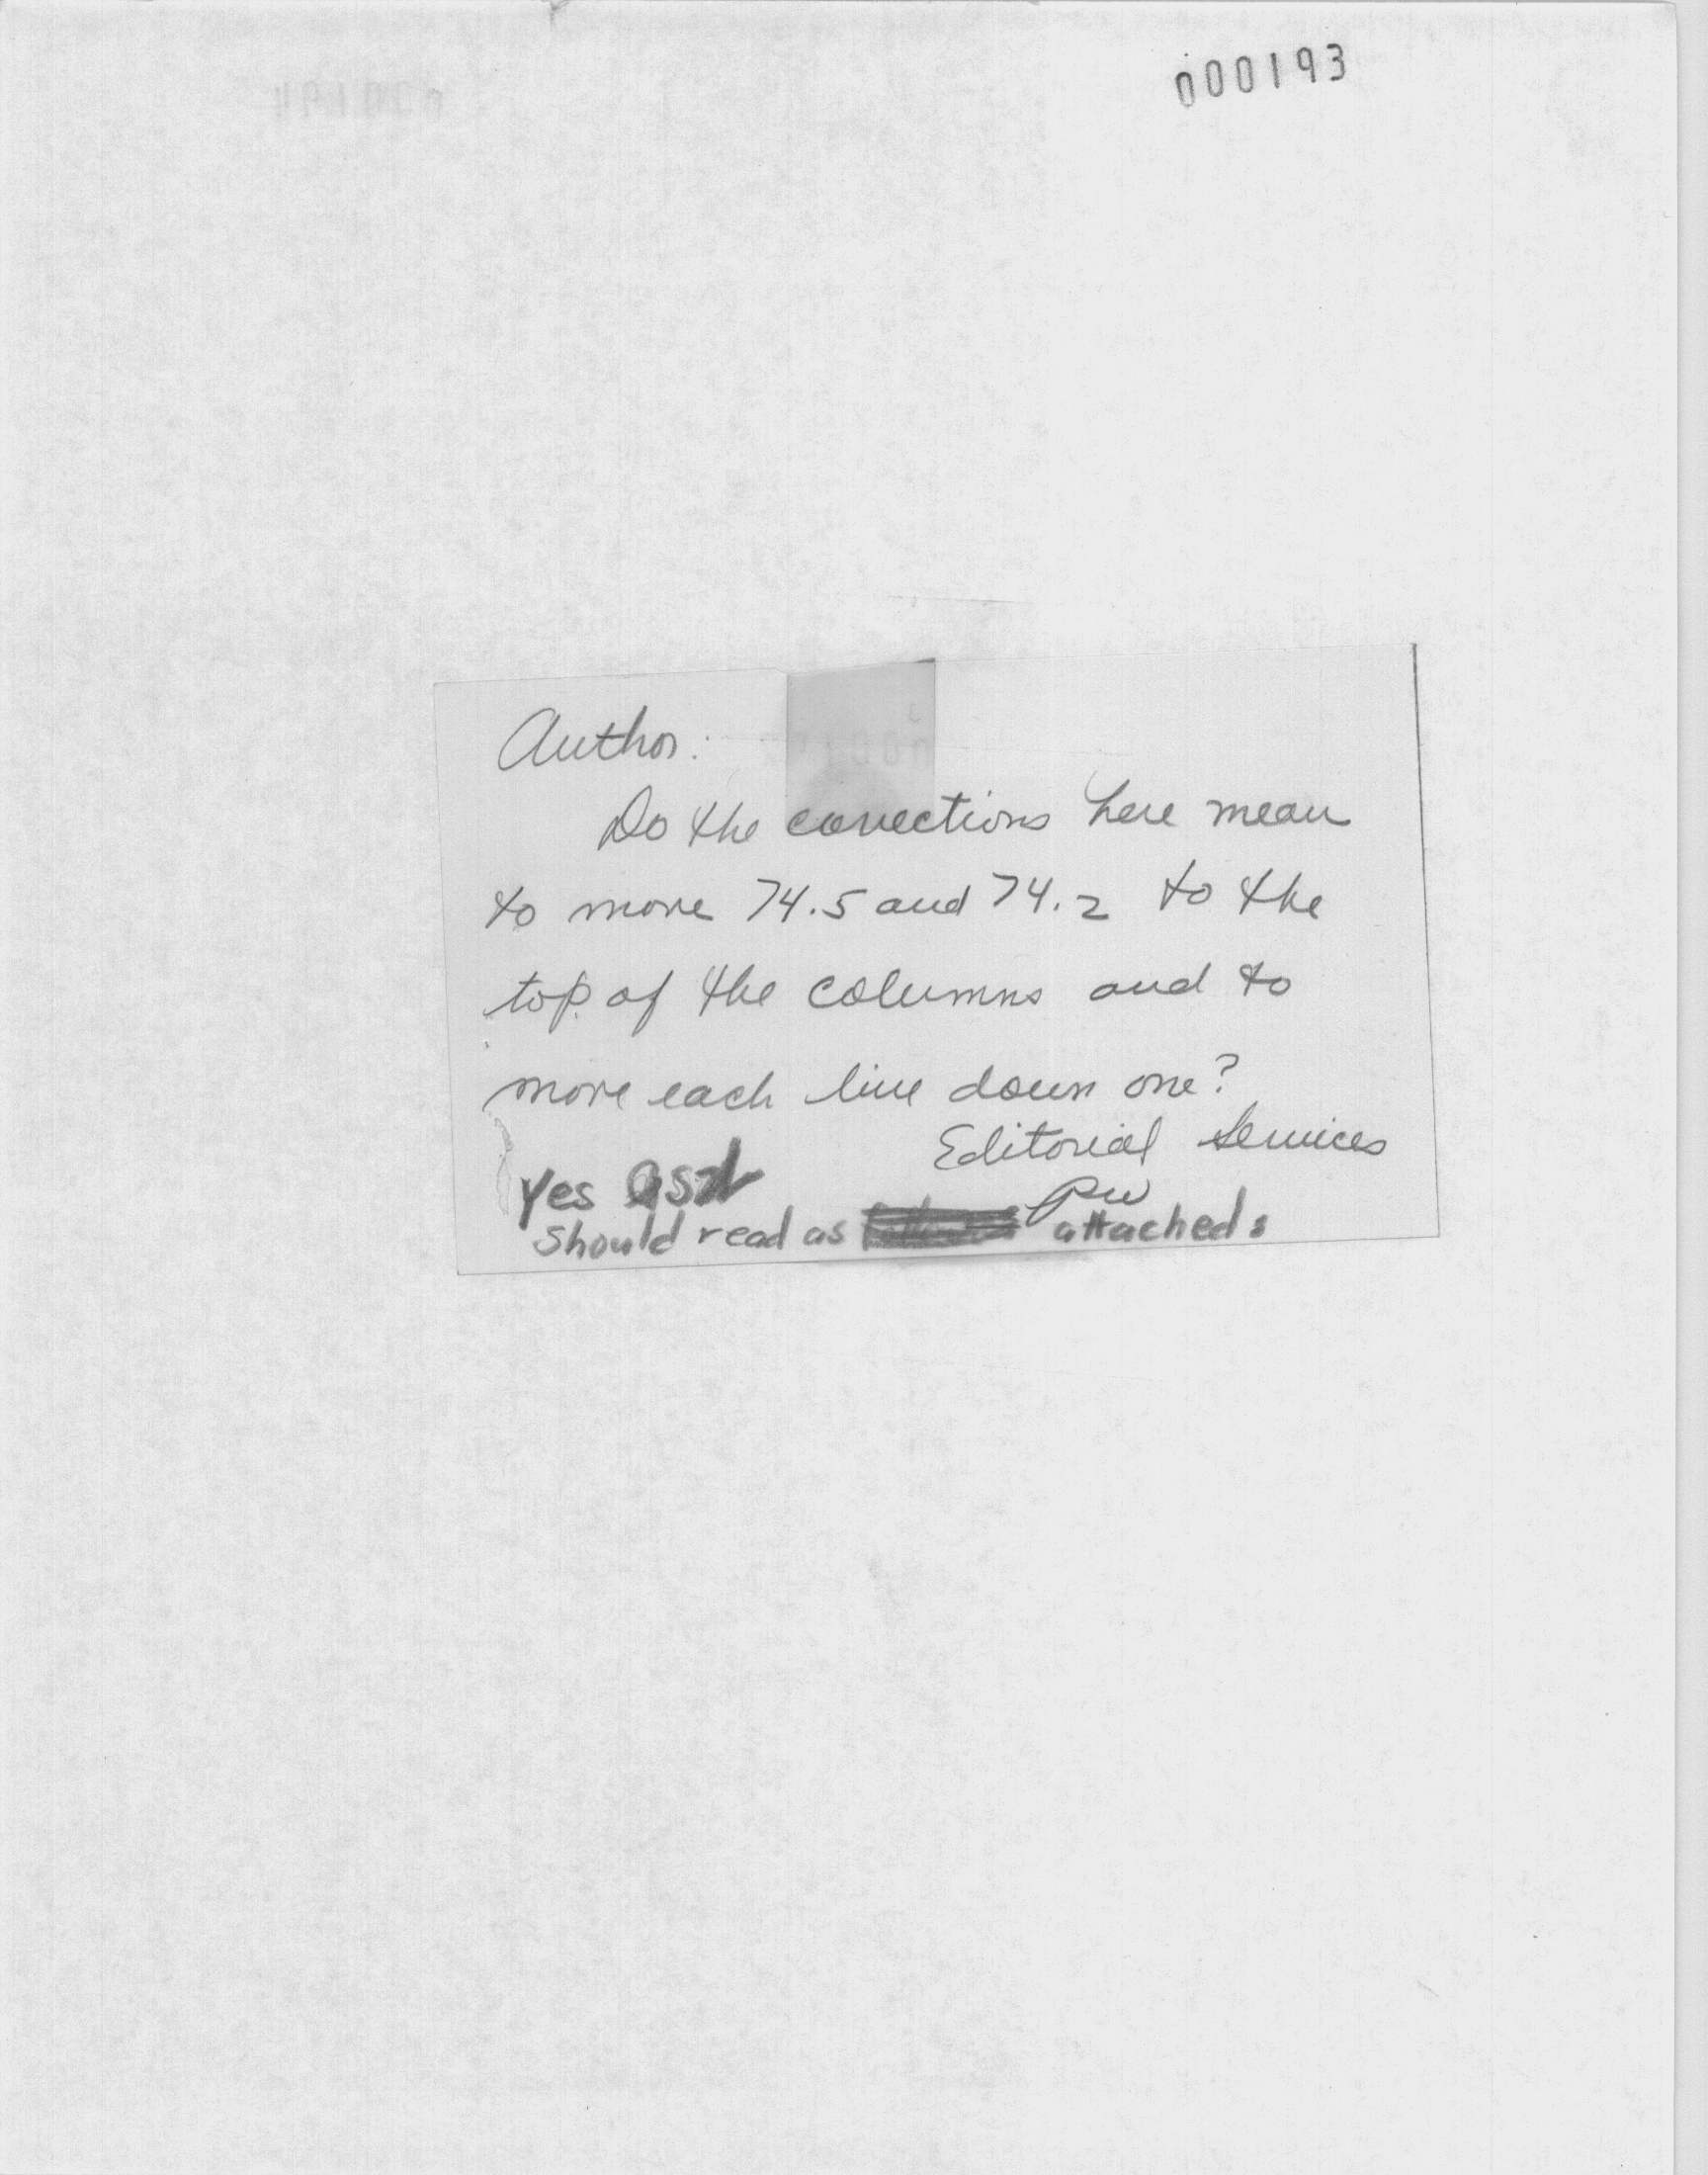 000193
Author:
Do the corrections here mean
to move 74.5 and 74.2 to the
top of the columns and to
move each line down one?
Editorial Services
PW
Yes
Should read as attached: